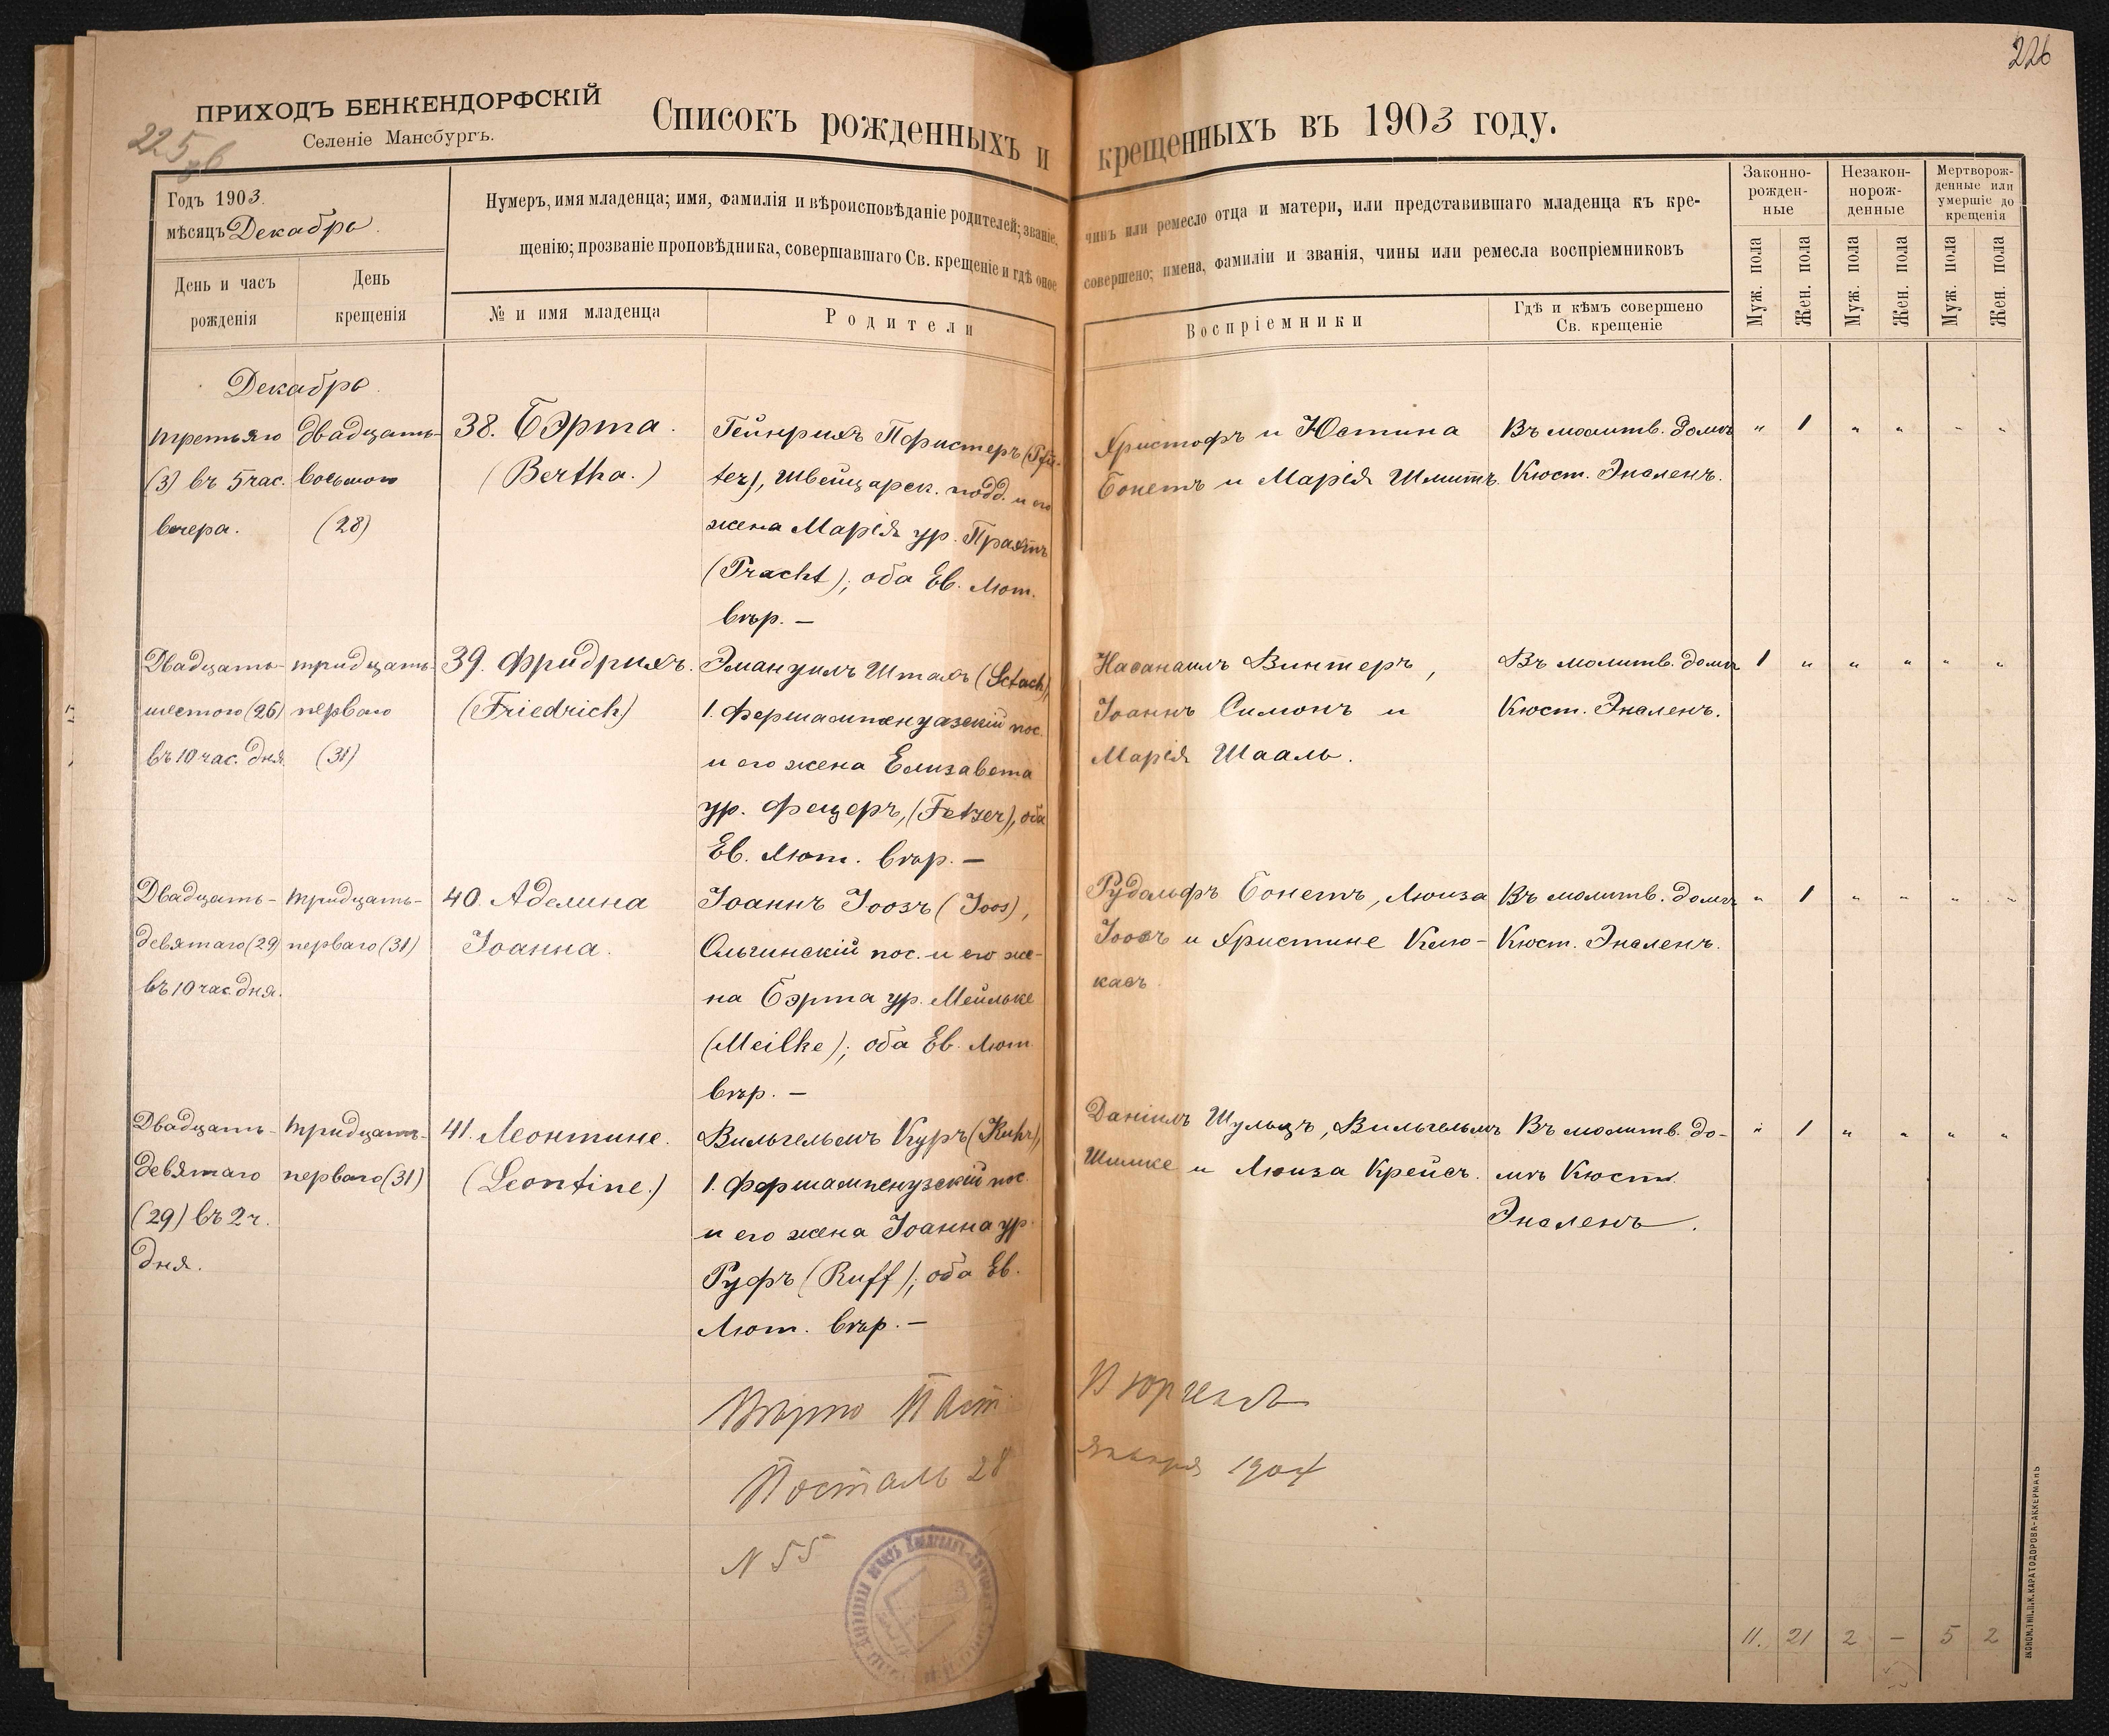 226
ПРИХОДЪ БЕНКЕНДОРФСКІЙ
Селеніе Мансбургъ.
225
Списокъ рожденныхъ и крещенныхъ въ 1903 году.
Годъ 1903.
мѣсяцъ Декабрь.
День и часъ рожденія
День крещенія
Нумеръ, имя младенца; имя, фамилія и вѣроисповѣданіе родителей; званіе, чинъ или ремесло отца и матери, или представившаго младенца къ кре-
щенію; прозваніе проповѣдника, совершавшаго Св. крещеніе и гдѣ оное совершено; имена, фамиліи и званія, чины или ремесла воспріемниковъ
№ и имя младенца
Родители
Воспріемники
Гдѣ и кѣмъ совершено
Св. крещеніе
Законно-
рожден-
ные
Незакон-
норож-
денные
Мертворож-
денные или
умершіе до
крещенія
Муж. пола
Жен. пола
Муж. пола
Жен. пола
Муж. пола
Жен. пола
Декабрь.
третьяго
(3) въ 5 час.
вечера.
двадцать-
восьмого
(28)
38. Бэрта.
(Bertha.)
Гейнрихъ Пфистеръ (Pfis-
ter), Швейцарск. подд. и его
жена Марія ур. Прахтъ
(Pracht); оба Ев. Лют.
вѣр. —
Христофъ и Юстина
Бонетъ и Марія Шмитъ.
Въ молитв. домѣ
Кюст. Эналенъ.
" 1 " " " "
Двадцать-
шестого (26)
въ 10 час. дня.
тридцать-
перваго
(31)
39. Фридрихъ.
(Friedrich)
Эмануилъ Штахъ (Sctach),
1. Фершампенуазскій пос.
и его жена Елизавета
ур. Фецеръ, (Fetzer), оба
Ев. Лют. вѣр. —
Насанаилъ Винтеръ,
Іоаннъ Симонъ и
Марія Шааль.
Въ молитв. домѣ
Кюст. Эналенъ.
1 " " " " "
Двадцать-
девятаго (29)
въ 10 час. дня.
тридцать-
перваго (31)
40. Аделина
Іоанна.
Іоаннъ Іоозъ (Joos),
Ольгинскій пос. и его же-
на Бэрта ур. Мейльке
(Meilke); оба Ев. Лют.
вѣр. —
Рудольфъ Бонетъ, Люиза
Іоозъ и Христине Клю-
касъ.
Въ молитв. домѣ
Кюст. Эналенъ.
" 1 " " " "
Двадцать-
девятаго
(29) въ 2 ч.
дня.
тридцать-
перваго (31)
41. Леонтине.
(Leontine.)
Вильгельмъ Куръ (Kuhr),
1. Фершампенузскій пос.
и его жена Іоанна ур.
Руфъ (Ruff); оба Ев.
Лют. вѣр. —
Даніилъ Шульцъ, Вильгельмъ
Шилке и Люиза Крейсъ.
Въ молитв. до-
мѣ Кюст.
Эналенъ.
" 1 " " " "
Вѣрно Паст.
Посталь 28 января 1904
N 55
11. 21 2 — 5 2